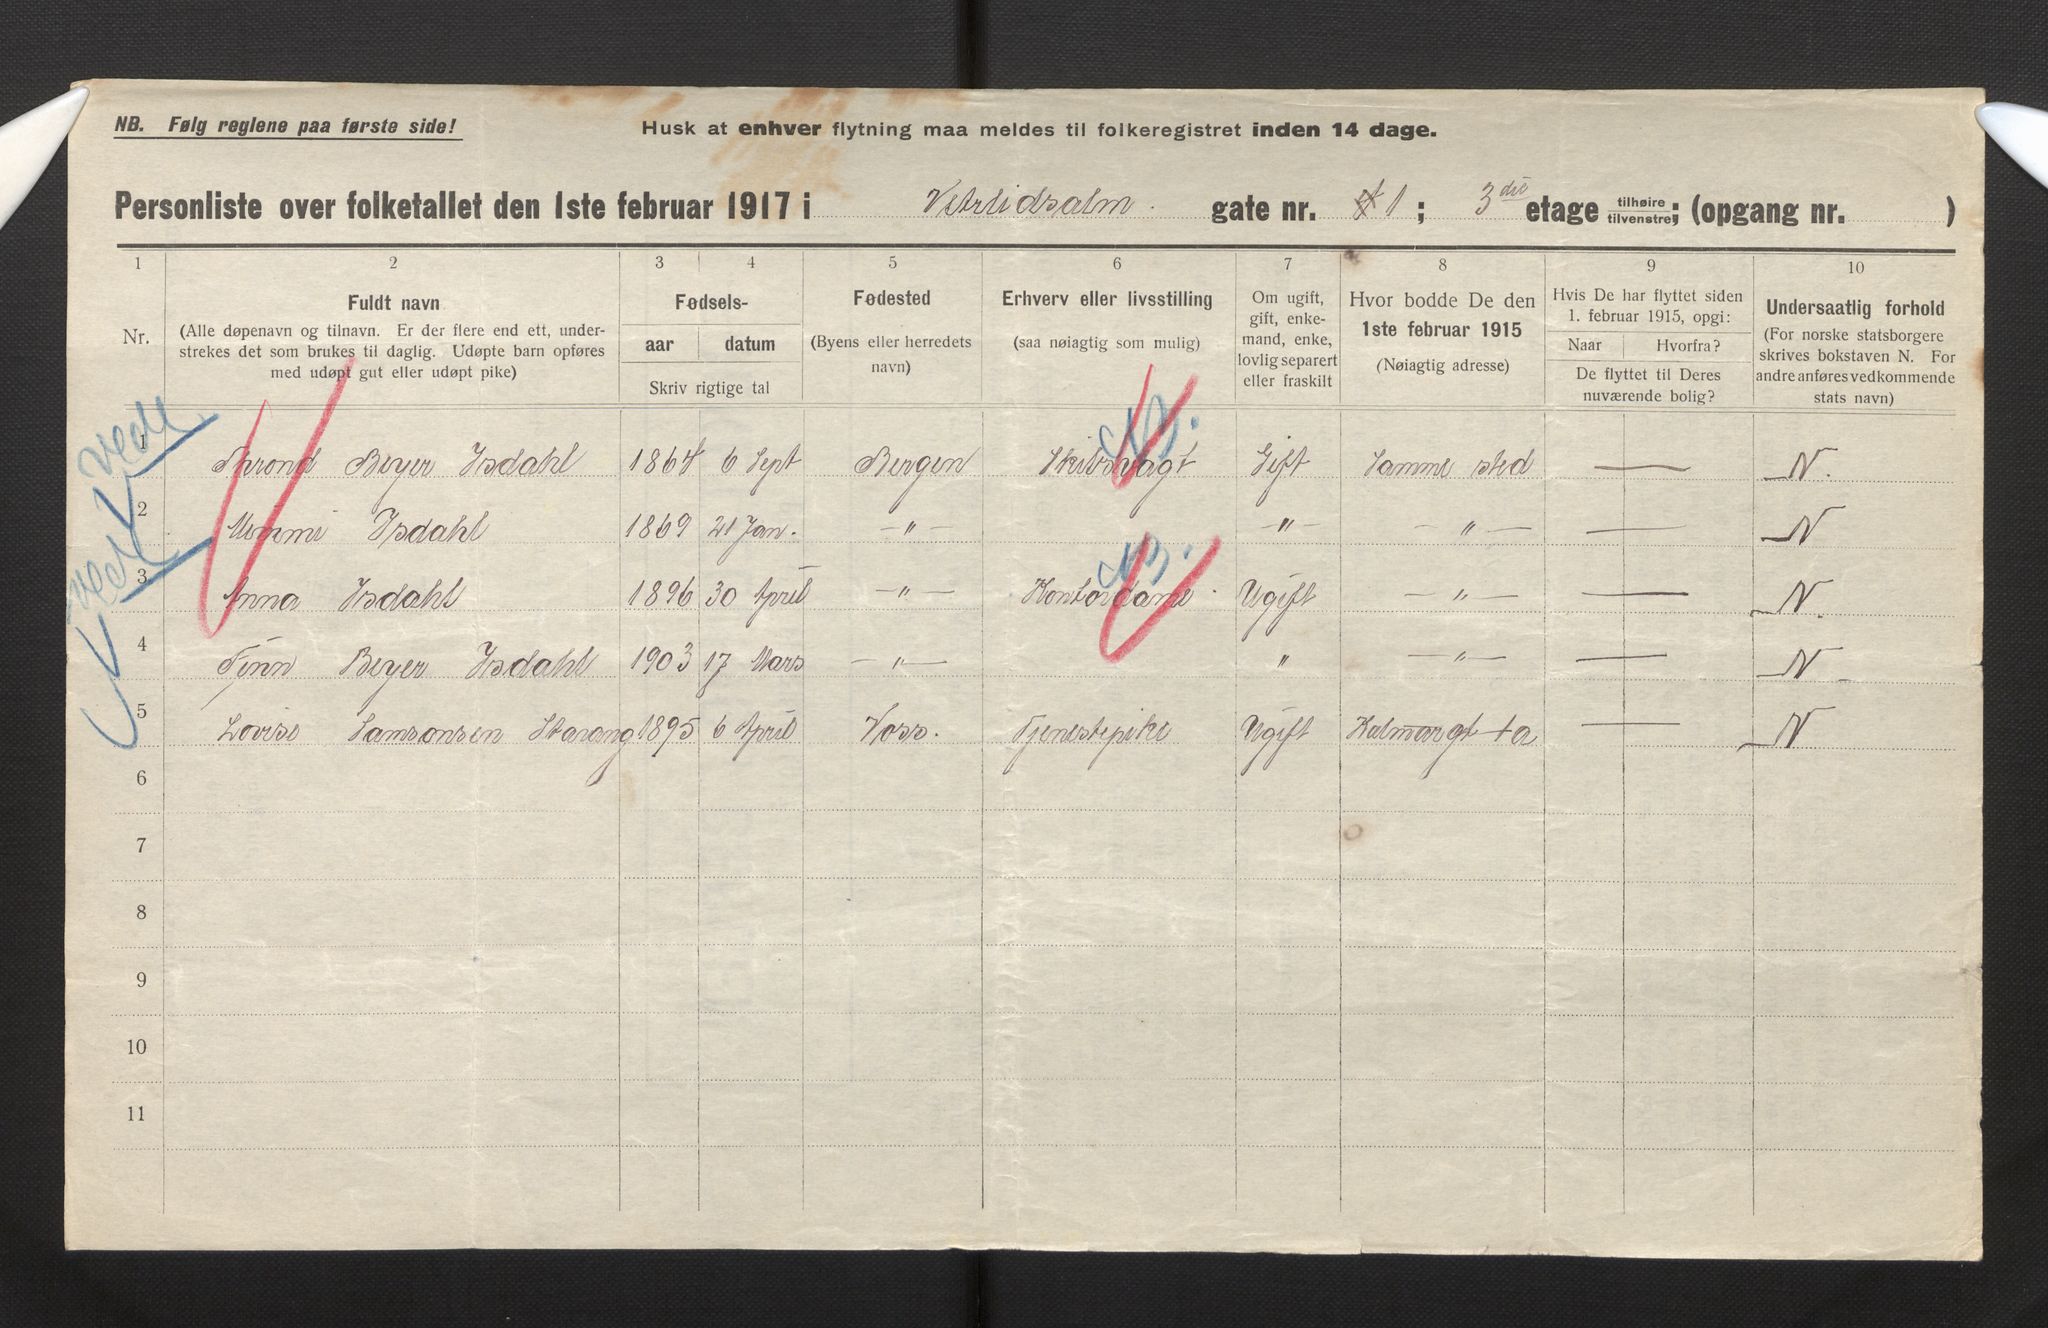 NB. Følg reglene paa første side!
Husk at enhver flytning maa meldes til folkeregistret inden 14 dage.
Personliste over folketallet den 1ste februar 1917 i Vetrlidsalm. gate nr. 1; 3die etage tilhøire tilvenstre; (opgang nr. )
1 2 3 4 5 6 7 8 9 10
Nr.
Fuldt navn
(Alle døpenavn og tilnavn. Er der flere end ett, under-
strekes det som brukes til daglig. Udøpte barn opføres
med udøpt gut eller udøpt pike)
Fødsels-
aar datum
Skriv rigtige tal
Fødested
(Byens eller herredets
navn)
Erhverv eller livsstilling
(saa nøiagtig som mulig)
Om ugift,
gift, enke-
mand, enke,
lovlig separert
eller fraskilt
Hvor bodde De den
1ste februar 1915
(Nøiagtig adresse)
Hvis De har flyttet siden
1. februar 1915, opgi:
Naar Hvorfra?
De flyttet til Deres
nuværende bolig?
Undersaatlig forhold
(For norske statsborgere
skrives bokstaven N. For
andre anføres vedkommende
stats navn)
vedl
1 Thrond Beyer Isdahl 1864 6 Sept Bergen Skibsmagt Gift Samme sted — N.
2 Mimmi Isdahl 1869 21 Jan. —"— —"— —"— — N
vedl
3 Anna Isdahl 1896 30 April —"— Kontordame. Ugift —"— — N.
4 Finn Beyer Isdahl 1903 17 Mars —"— " —"— — N
5 Lovise Samsonsen 1895 6 April Voss. Tjenestepike Ugift — N
6
7
8
9
10
11